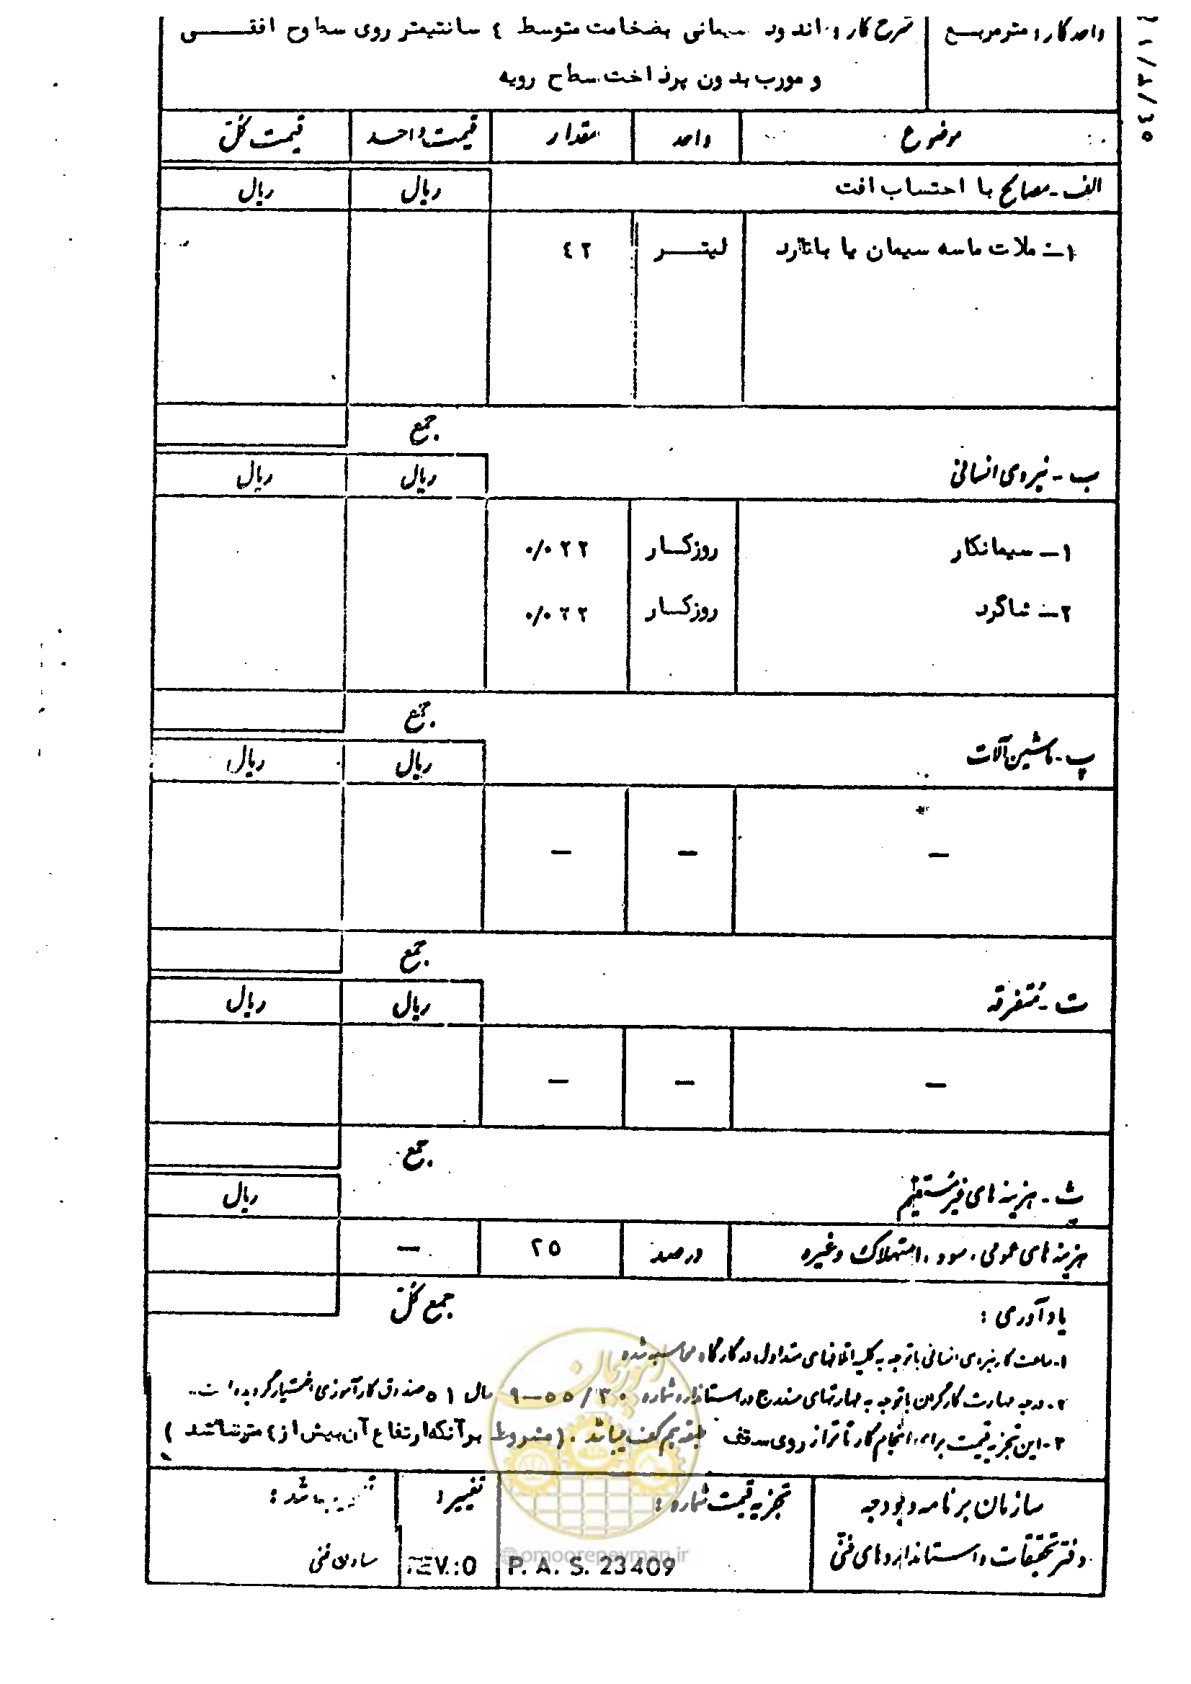 واحد کار : مترمربع
شرح کار : اندود سیمانی بضخامت متوسط ٤ سانتیمتر روی سطوح افقی
و مورب بدون پرداخت سطح رویه
موضوع واحد مقدار قیمت واحد قیمت کل
الف - مصالح با احتساب افت ریال ریال
۱- ملات ماسه سیمان یا باتارد لیتر ٤٢
جمع
ب - نیروی انسانی ریال ریال
۱- سیمانکار روزکار ۰/۰۲۲
۲- شاگرد روزکار ۰/۰۲۲
جمع
پ - ماشین آلات ریال ریال
— — —
جمع
ت - متفرقه ریال ریال
— — —
جمع
ث - هزینه های غیرمستقیم ریال
هزینه های عمومی ، سود ، استهلاک وغیره درصد ۲۵ —
جمع کل
یادآوری :
۱- ساعت کار نیروی انسانی با توجه به کلیه اتلافهای متداول در کارگاه محاسبه شده
۲- درجه مهارت کارگران با توجه به مهارتهای مندرج در استاندارد شماره ۳۰/۵۵-۹ سال ۵۱ صندوق کارآموزی اختیار گردیده است.
۳- این تجزیه قیمت برای انجام کار تا تراز روی سقف طبقه پنجم کف میباشد . (مشروط برآنکه ارتفاع آن بیش از ٤ متر نباشد )
سازمان برنامه وبودجه
دفتر تحقیقات واستانداردهای فنی
تجزیه قیمت شماره :
P. A. S. 23409
تغییر :
REV.:0
معاون فنی
امور پیمان
@omoorepeyman.ir